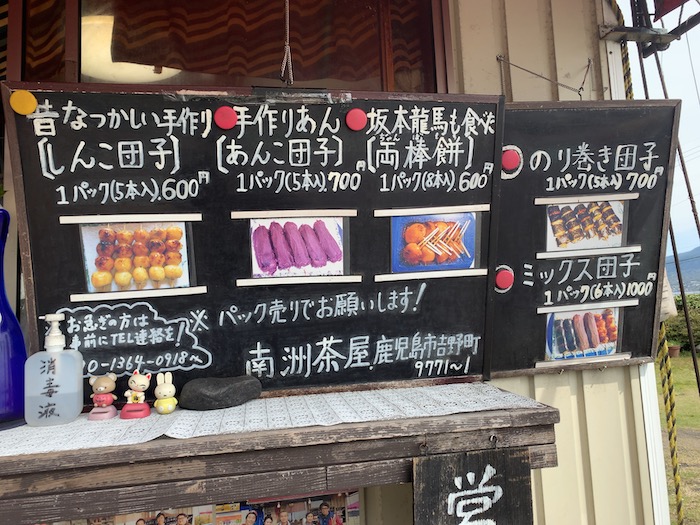 昔なつかしい手作り
[しんこ団子]
1パック(5本入).600円
手作りあん
[あんこ団子]
1パック(5本入).700円
坂本龍馬も食べた
[両棒餅]
1パック(8本入).600円
のり巻き団子
1パック(5本入)700円
ミックス団子
1パック(6本入)1000円
お急ぎの方は
事前にTEL連絡を!
0-1364-0918へ
※パック売りでお願いします!
南洲茶屋.鹿児島市吉野町
9771~1
消毒液
営